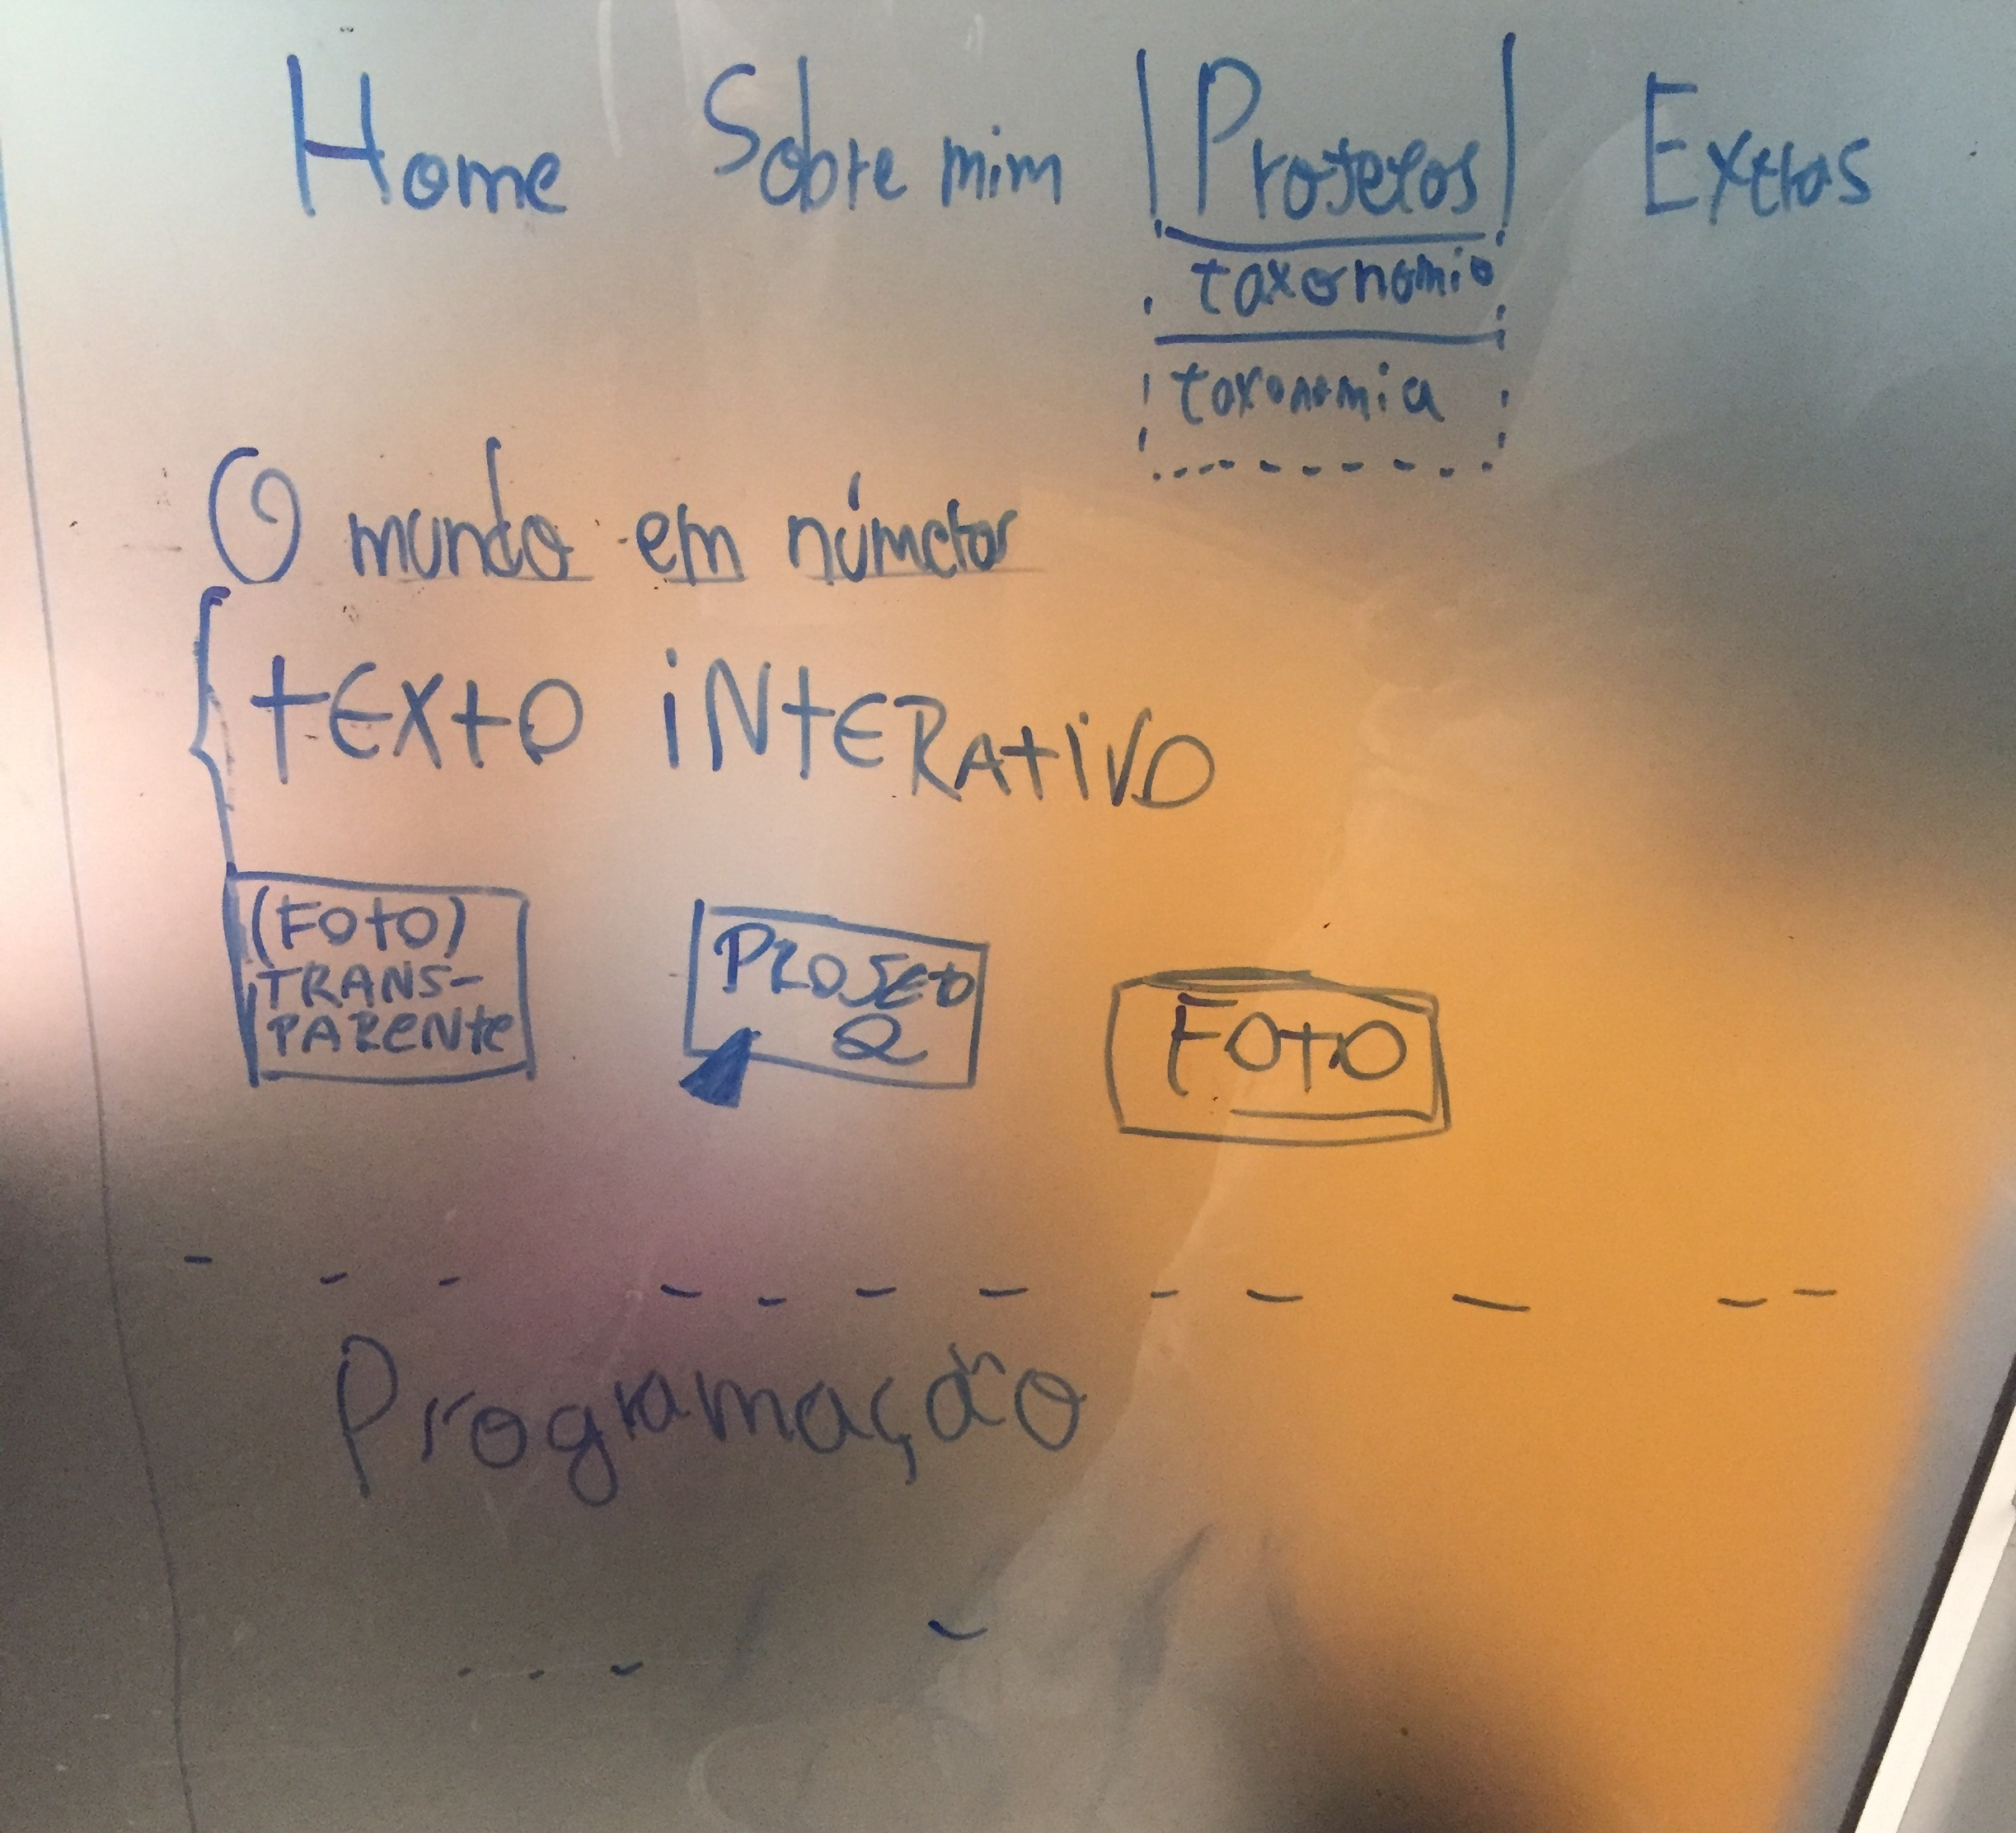 Home Sobre mim Projetos Extras
taxonomia
taxonomia
O mundo em números
tEXtO iNtERAtiVO
(FOtO)
TRANS-
PARENte
PROJEtO
2
FOtO
Programação